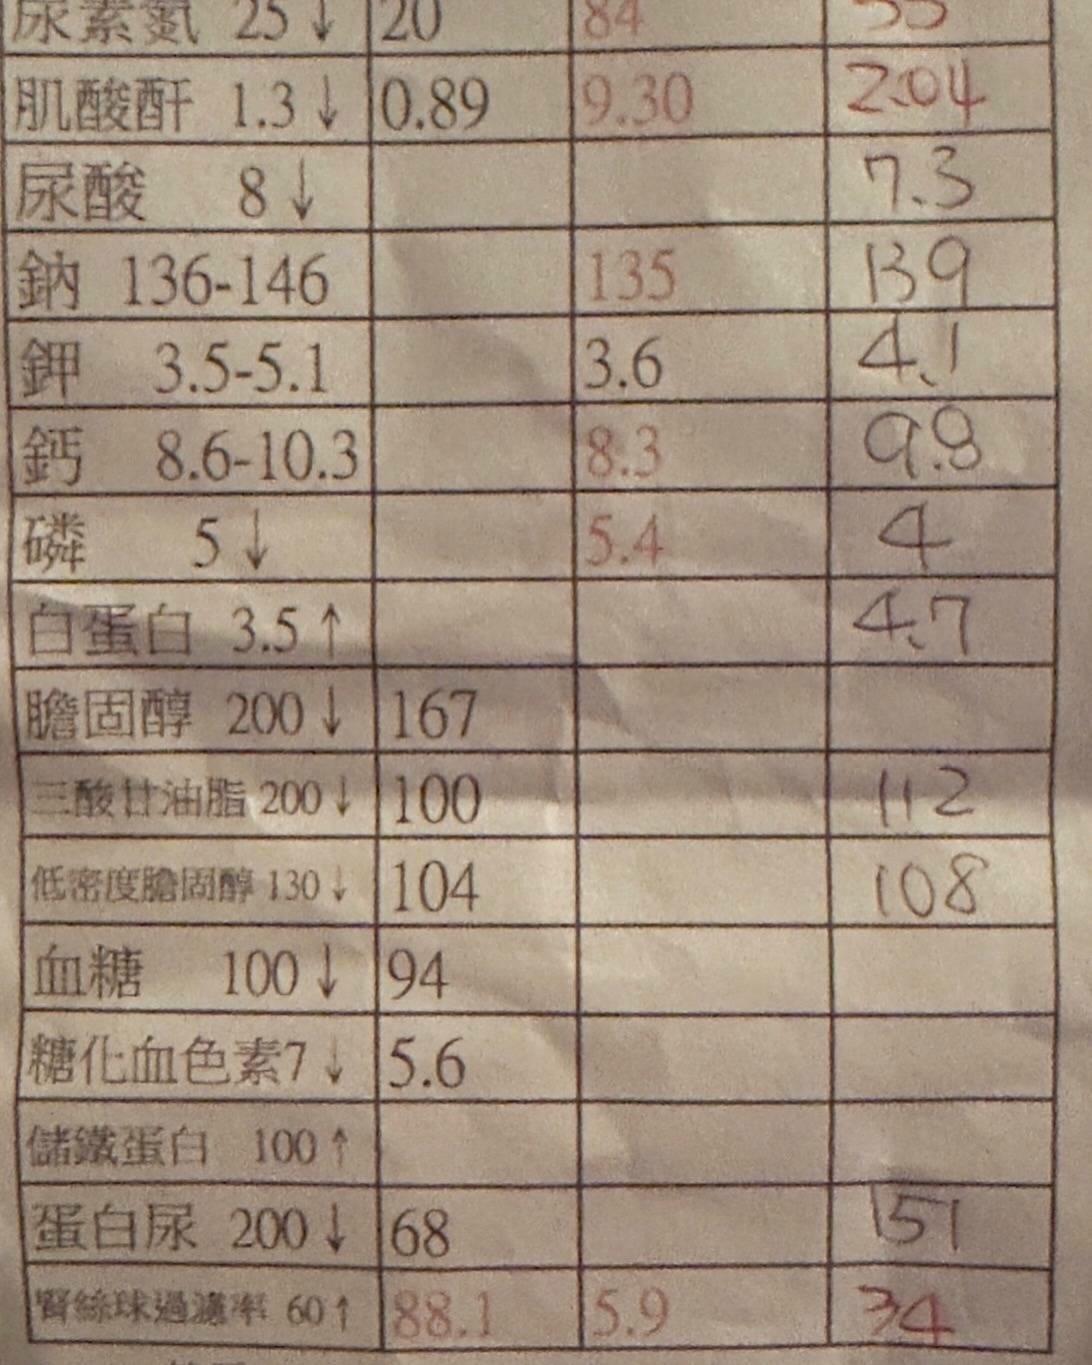 尿素氮 25↓ 20 84 55
肌酸酐 1.3↓ 0.89 9.30 2.04
尿酸 8↓ 7.3
鈉 136-146 135 139
鉀 3.5-5.1 3.6 4.1
鈣 8.6-10.3 8.3 9.8
磷 5↓ 5.4 4
白蛋白 3.5↑ 4.7
膽固醇 200↓ 167
三酸甘油脂 200↓ 100 112
低密度膽固醇 130↓ 104 108
血糖 100↓ 94
糖化血色素7↓ 5.6
儲鐵蛋白 100↑
蛋白尿 200↓ 68 151
腎絲球過濾率 60↑ 88.1 5.9 34